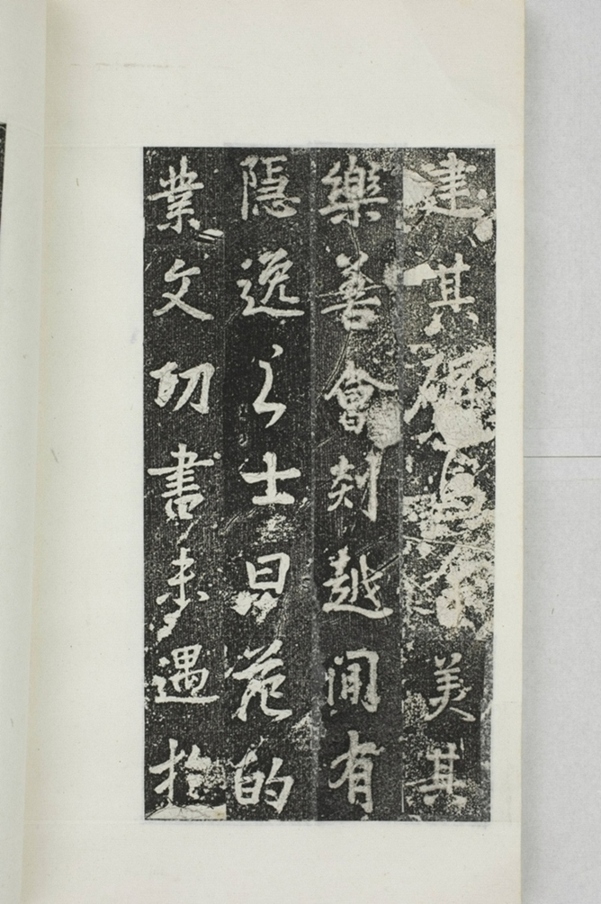 建其美其
樂善會剡越間有
隱逸之士曰范的
業文功書未遇於